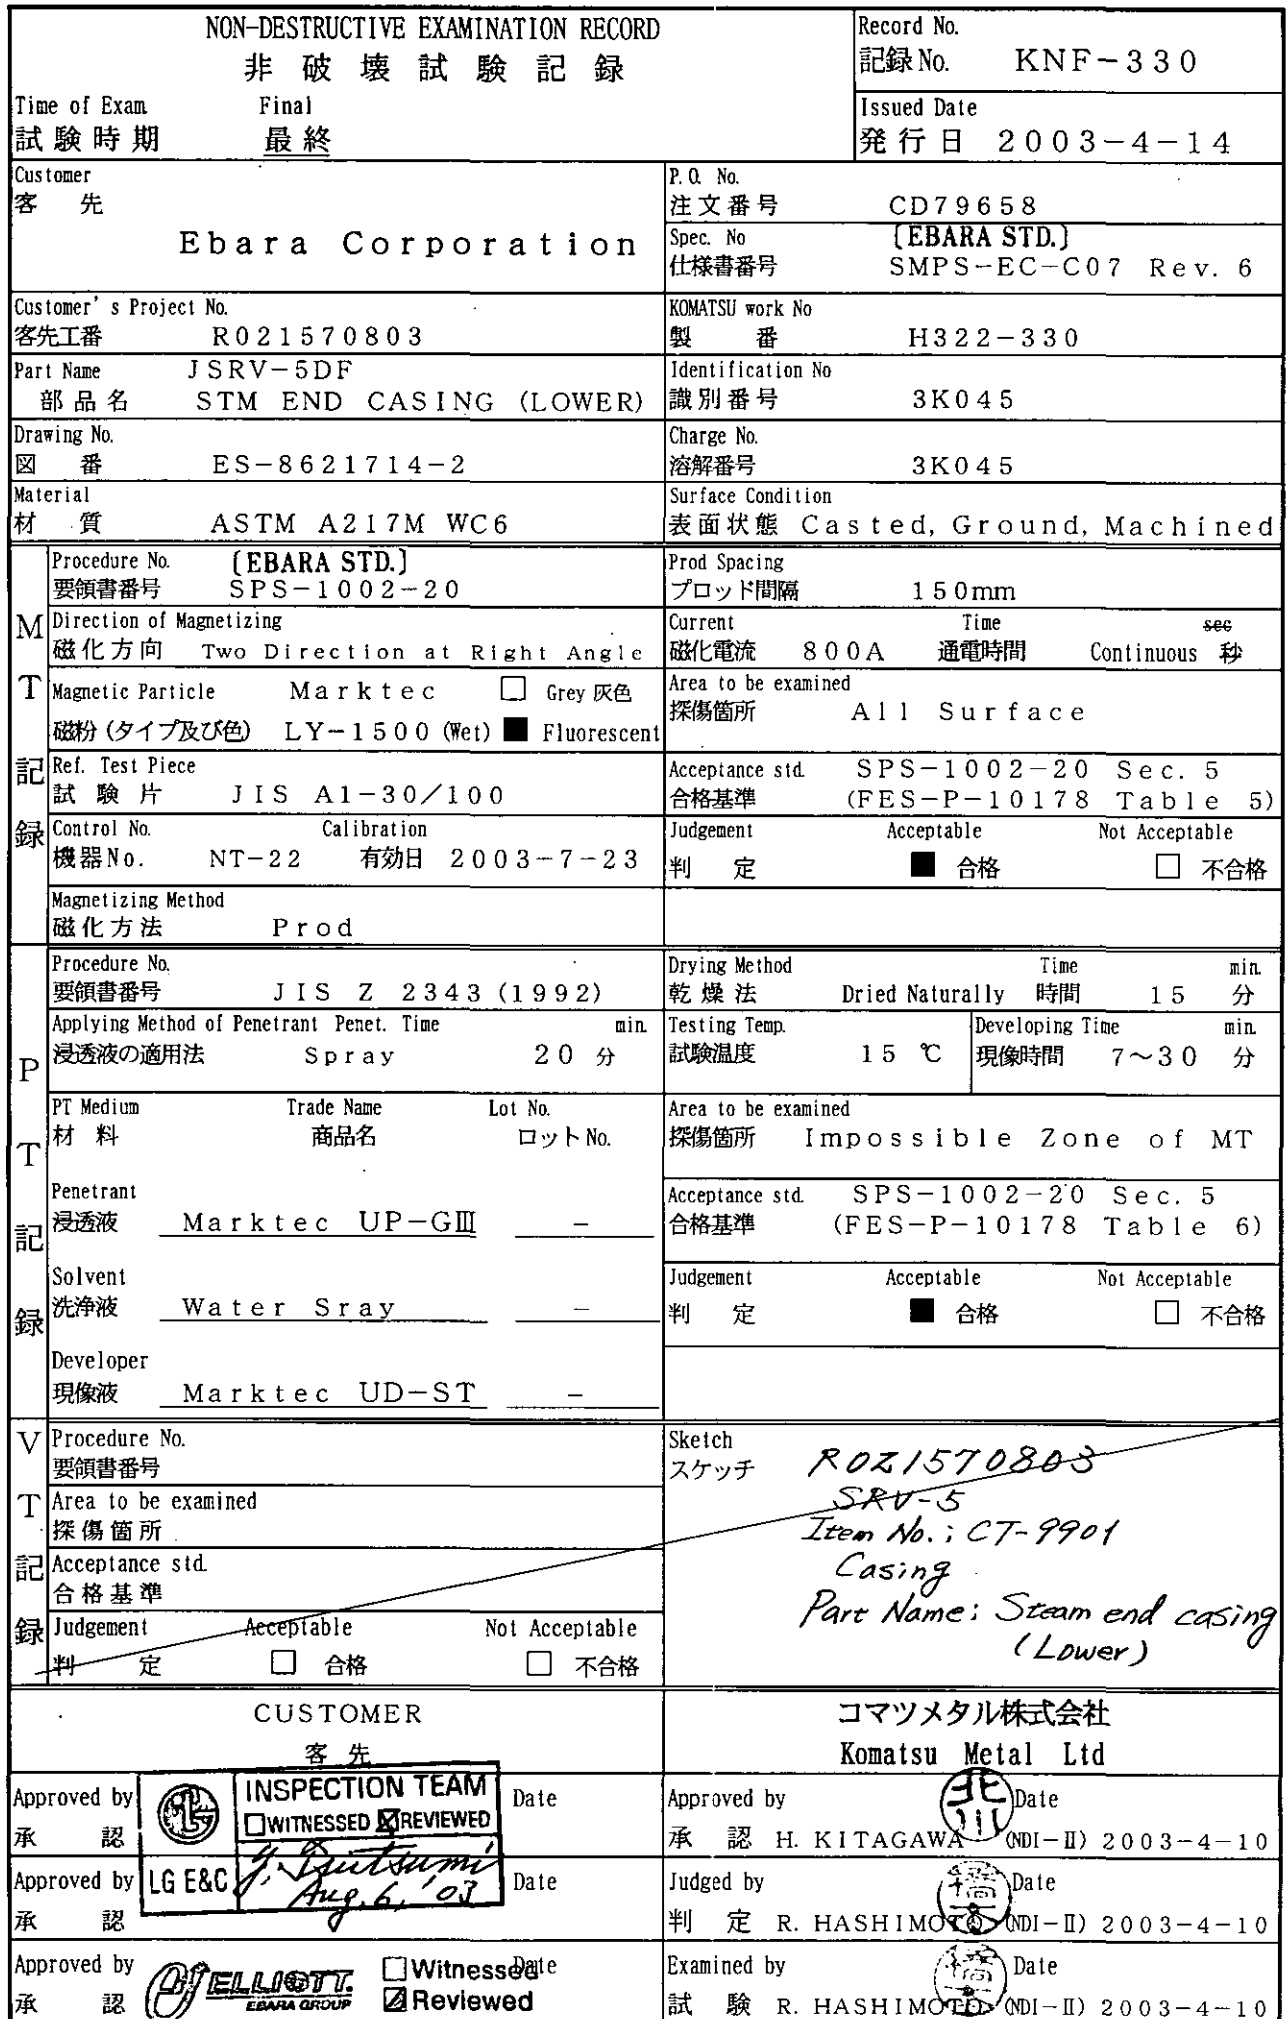 NON-DESTRUCTIVE EXAMINATION RECORD
非破壊試験記録
Time of Exam. Final
試験時期 最終
Record No.
記録No. KNF-330
Issued Date
発行日 2003-4-14
Customer
客先
Ebara Corporation
P.O. No.
注文番号 CD79658
Spec. No [EBARA STD.]
仕様書番号 SMPS-EC-C07 Rev. 6
Customer's Project No.
客先工番 R021570803
KOMATSU work No
製番 H322-330
Part Name JSRV-5DF
部品名 STM END CASING (LOWER)
Identification No
識別番号 3K045
Drawing No.
図番 ES-8621714-2
Charge No.
溶解番号 3K045
Material
材質 ASTM A217M WC6
Surface Condition
表面状態 Casted, Ground, Machined
MT記録
Procedure No. [EBARA STD.]
要領書番号 SPS-1002-20
Prod Spacing
プロッド間隔 150mm
Direction of Magnetizing
磁化方向 Two Direction at Right Angle
Current Time sec
磁化電流 800A 通電時間 Continuous 秒
Magnetic Particle Marktec □ Grey 灰色
磁粉(タイプ及び色) LY-1500 (Wet) ■ Fluorescent
Area to be examined
探傷箇所 All Surface
Ref. Test Piece
試験片 JIS A1-30/100
Acceptance std. SPS-1002-20 Sec. 5
合格基準 (FES-P-10178 Table 5)
Control No. Calibration
機器No. NT-22 有効日 2003-7-23
Judgement Acceptable Not Acceptable
判定 ■ 合格 □ 不合格
Magnetizing Method
磁化方法 Prod
PT記録
Procedure No.
要領書番号 JIS Z 2343(1992)
Drying Method Time min.
乾燥法 Dried Naturally 時間 15 分
Applying Method of Penetrant Penet. Time min.
浸透液の適用法 Spray 20 分
Testing Temp.
試験温度 15 ℃
Developing Time min.
現像時間 7~30 分
PT Medium Trade Name Lot No.
材料 商品名 ロットNo.
Area to be examined
探傷箇所 Impossible Zone of MT
Penetrant
浸透液 Marktec UP-GⅢ -
Acceptance std. SPS-1002-20 Sec. 5
合格基準 (FES-P-10178 Table 6)
Solvent
洗浄液 Water Sray -
Judgement Acceptable Not Acceptable
判定 ■ 合格 □ 不合格
Developer
現像液 Marktec UD-ST -
VT記録
Procedure No.
要領書番号
Area to be examined
探傷箇所
Acceptance std.
合格基準
Judgement Acceptable Not Acceptable
判定 □ 合格 □ 不合格
Sketch
スケッチ R021570803
SRV-5
Item No.; CT-9901
Casing
Part Name: Steam end casing
(Lower)
CUSTOMER
客先
コマツメタル株式会社
Komatsu Metal Ltd
Approved by Date
承認
INSPECTION TEAM
□WITNESSED ☒REVIEWED
LG E&C
Y. Tsutsumi
Aug. 6, '03
Approved by 北川 Date
承認 H. KITAGAWA (NDI-Ⅱ) 2003-4-10
Approved by Date
承認
Judged by Date
判定 R. HASHIMOTO (NDI-Ⅱ) 2003-4-10
Approved by Date
承認
ELLIOTT
EBARA GROUP
□Witnessed
☑Reviewed
Examined by Date
試験 R. HASHIMOTO (NDI-Ⅱ) 2003-4-10